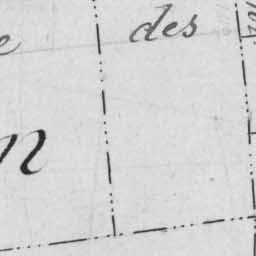 e des
n